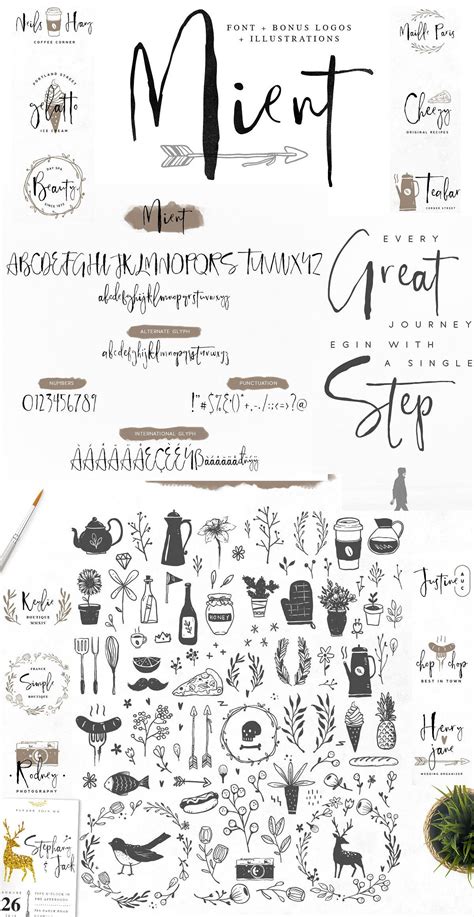 FONT + BONUS LOGOS
+ ILLUSTRATIONS
Mient
COFFEE CORNER
PORTLAND STREET
gelatto
ICE CREAM
DAY SPA
Beauty
SINCE 1975
Maille Paris
Cheezy
ORIGINAL RECIPES
Teabar
CORNER STREET
Mient
ABCDEFGHIJKLMNOPQRSTUVWXYZ
abcdefghijklmnopqrstuvwxyz
ALTERNATE GLYPH
abcdefghijklmnopqrstuvwxyz
NUMBERS
0123456789
PUNCTUATION
INTERNATIONAL GLYPH
EVERY
Great
JOURNEY
EGIN WITH
A SINGLE
Step
HONEY
Kealie
BOUTIQUE
FRANCE
Simply
BOUTIQUE
Rodney
PHOTOGRAPHY
Justine
chop chop
BEST IN TOWN
Henry
jane
WEDDING ORGANIZER
Stephany
Jack
26